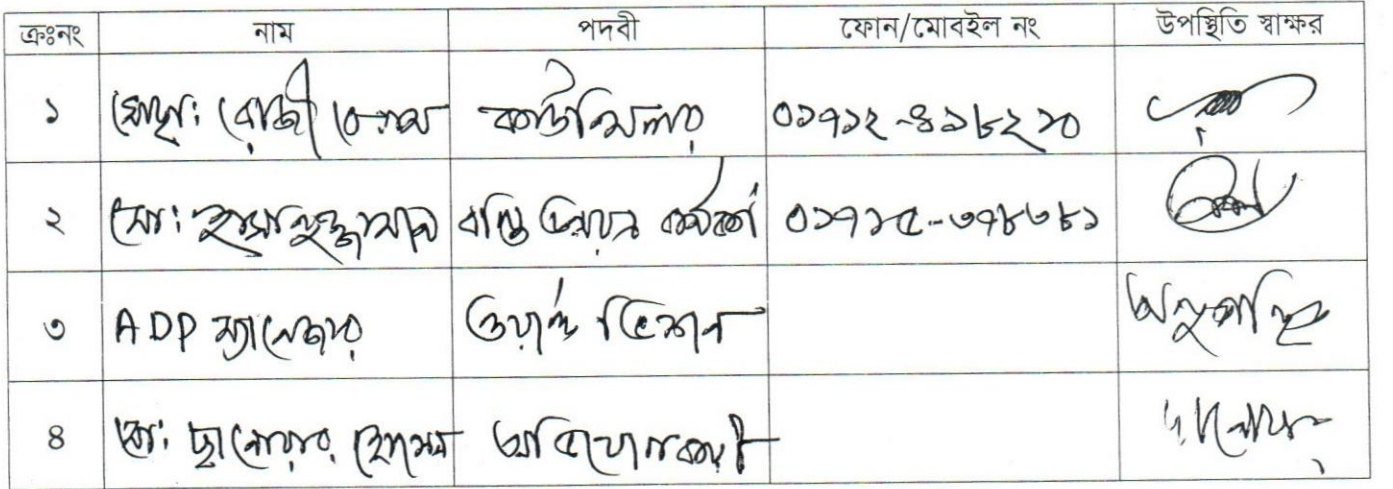 ক্রঃনং নাম পদবী ফোন/মোবইল নং উপস্থিতি স্বাক্ষর
১ মোছা: রোজী বেগম কাউন্সিলর ০১৭১২-৪১৮২১০
২ মো: হাসানুজ্জামান বস্তি উন্নয়ন কর্মকর্তা ০১৭১৫-৩৭৮৩৮১
৩ ADP ম্যানেজার ওয়ার্ল্ড ভিশন অনুপস্থিত
৪ মো: ছানোয়ার হোসেন